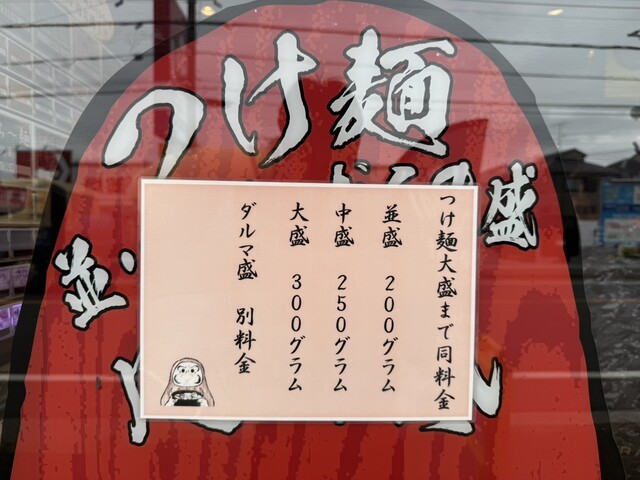 つけ麺
盛
並・
つけ麺大盛まで同料金
並盛 200グラム
中盛 250グラム
大盛 300グラム
ダルマ盛 別料金